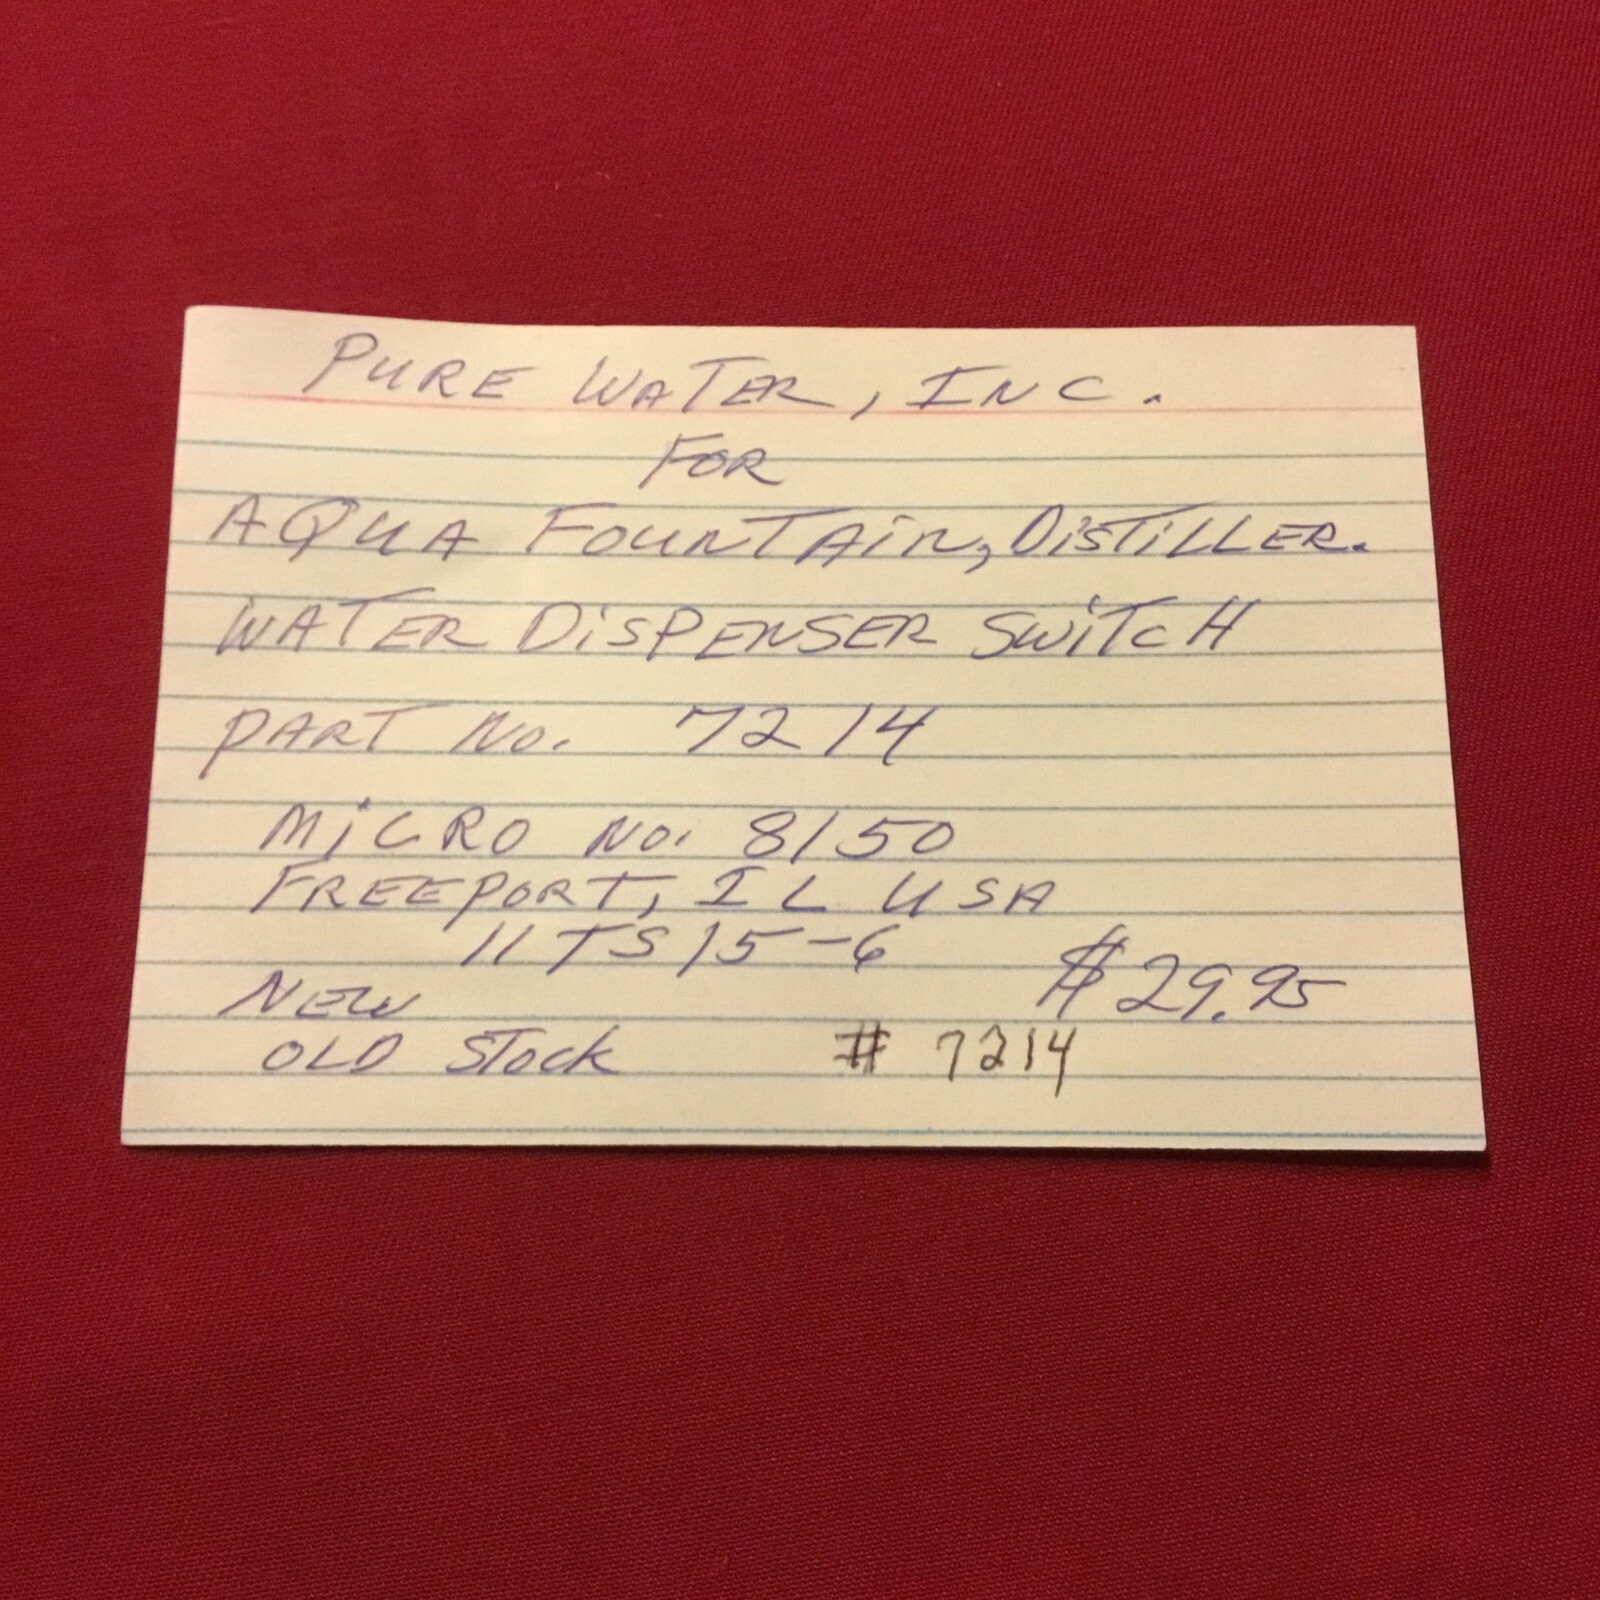 PURE WATER, INC.
FOR
AQUA FOUNTAIN, DISTILLER.
WATER DISPENSER SWITCH
PART NO. 7214
MICRO NO. 8150
FREEPORT, IL USA
11TS15-6
$29.95
NEW
OLD STOCK # 7214